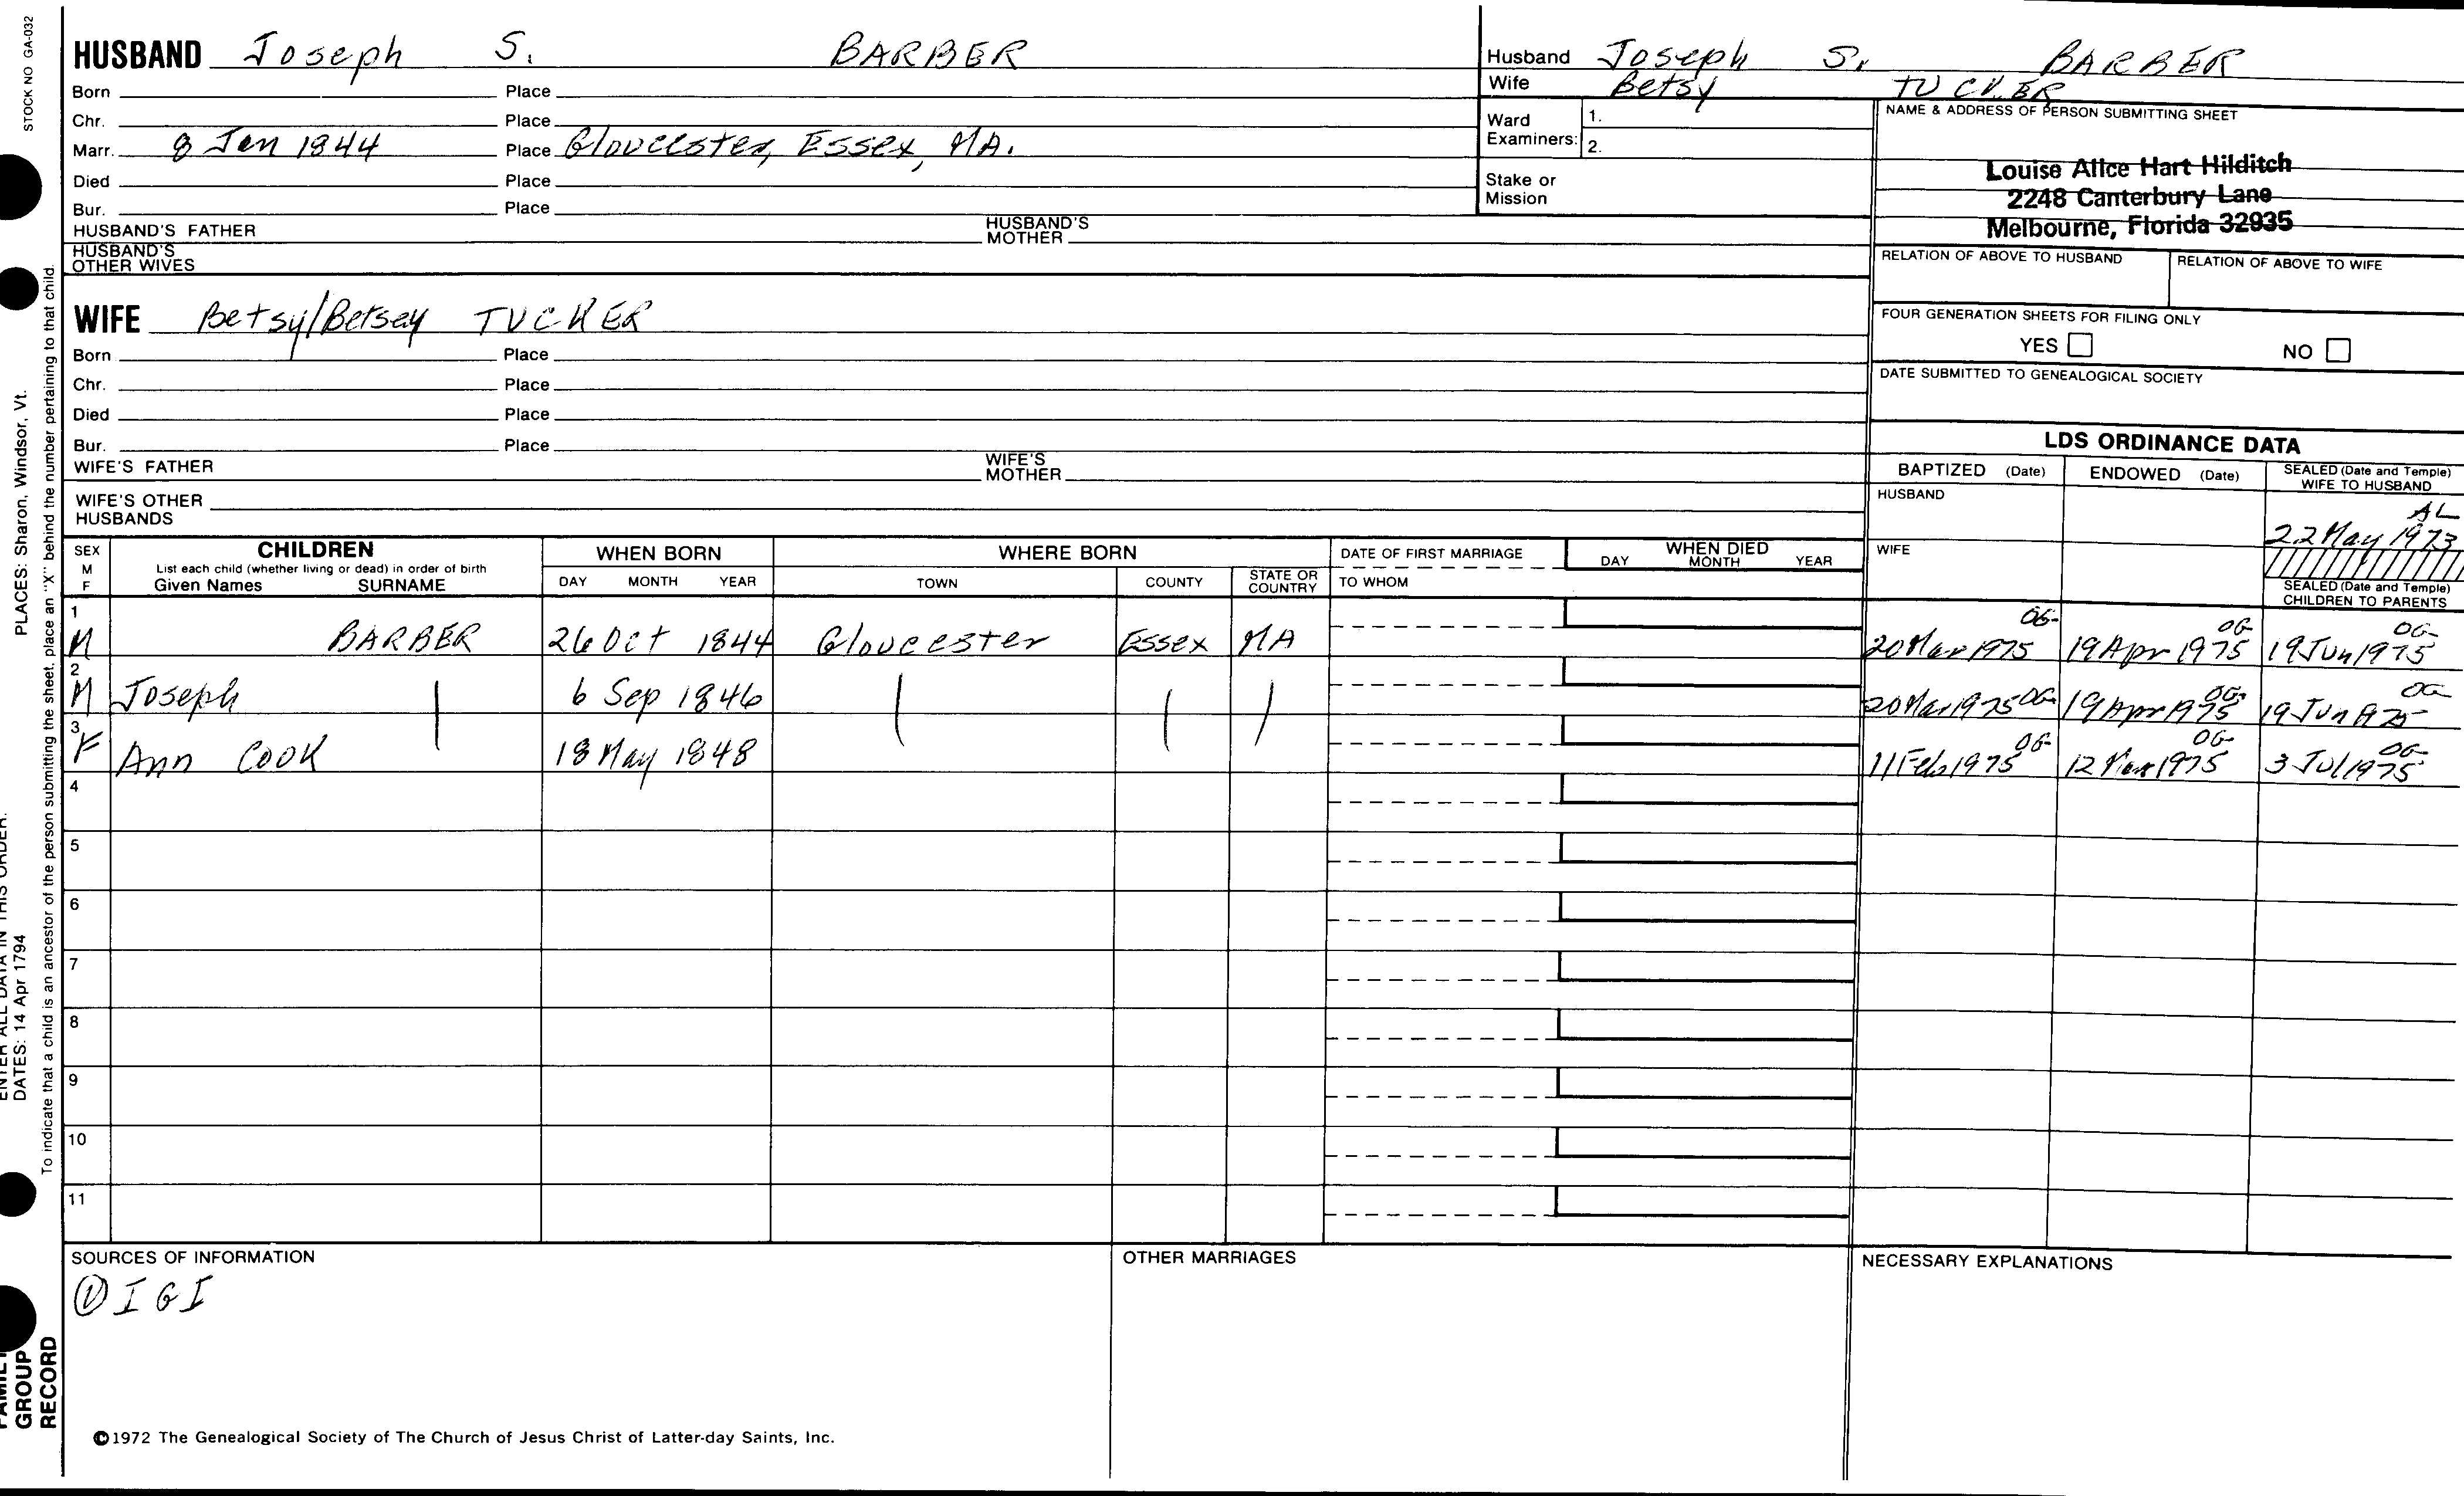 STOCK NO GA-032
HUSBAND Joseph S. BARBER
Born Place
Chr. Place
Marr. 8 Jan 1844 Place Gloucester, Essex, MA.
Died Place
Bur. Place
HUSBAND'S FATHER HUSBAND'S MOTHER
HUSBAND'S OTHER WIVES
WIFE Betsy/Betsey TUCKER
Born Place
Chr. Place
Died Place
Bur. Place
WIFE'S FATHER WIFE'S MOTHER
WIFE'S OTHER HUSBANDS
Husband Joseph S. BARBER
Wife Betsy TUCKER
Ward Examiners: 1.
2.
Stake or Mission
NAME & ADDRESS OF PERSON SUBMITTING SHEET
Louise Alice Hart Hilditch
2248 Canterbury Lane
Melbourne, Florida 32935
RELATION OF ABOVE TO HUSBAND RELATION OF ABOVE TO WIFE
FOUR GENERATION SHEETS FOR FILING ONLY
YES NO
DATE SUBMITTED TO GENEALOGICAL SOCIETY
LDS ORDINANCE DATA
BAPTIZED (Date) ENDOWED (Date) SEALED (Date and Temple) WIFE TO HUSBAND
HUSBAND
AL
22 May 1973
WIFE
SEALED (Date and Temple) CHILDREN TO PARENTS
SEX M F
CHILDREN
List each child (whether living or dead) in order of birth
Given Names SURNAME
WHEN BORN
DAY MONTH YEAR
WHERE BORN
TOWN COUNTY STATE OR COUNTRY
DATE OF FIRST MARRIAGE
TO WHOM
WHEN DIED
DAY MONTH YEAR
1 M BARBER 26 Oct 1844 Gloucester Essex MA 20 Mar 1975 OG 19 Apr 1975 OG 19 Jun 1975 OG
2 M Joseph | 6 Sep 1846 | | | 20 Mar 1975 OG 19 Apr 1975 OG 19 Jun 1975 OG
3 F Ann COOK 18 May 1848 11 Feb 1975 OG 12 Mar 1975 OG 3 Jul 1975 OG
4
5
6
7
8
9
10
11
SOURCES OF INFORMATION
① IGI
OTHER MARRIAGES
NECESSARY EXPLANATIONS
©1972 The Genealogical Society of The Church of Jesus Christ of Latter-day Saints, Inc.
PLACES: Sharon, Windsor, Vt.
ENTER ALL DATA IN THIS ORDER:
DATES: 14 Apr 1794
To indicate that a child is an ancestor of the person submitting the sheet, place an "X" behind the number pertaining to that child.
FAMILY
GROUP
RECORD